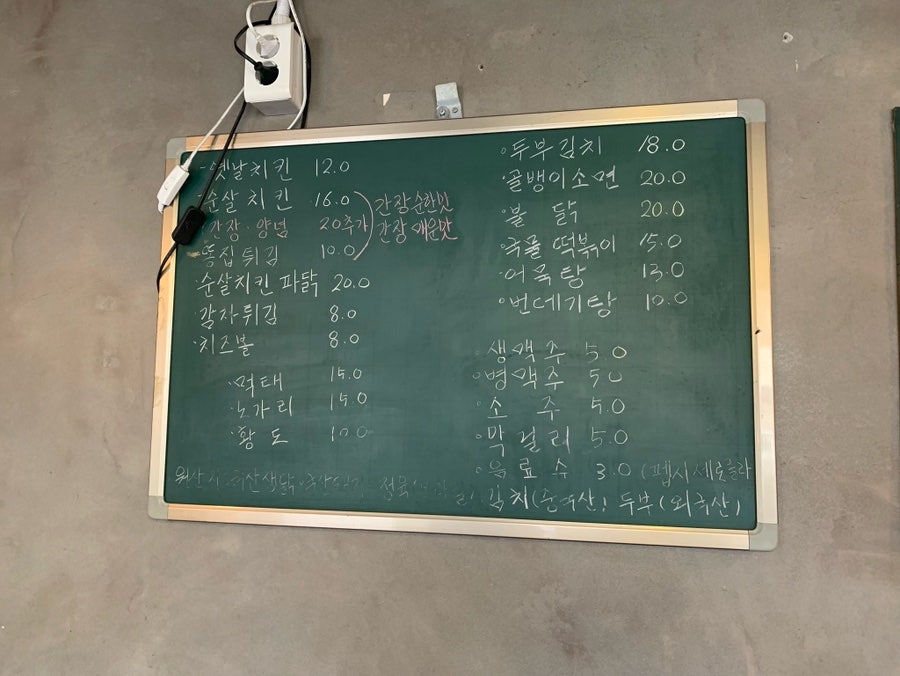 · 옛날치킨 12.0
· 순살치킨 16.0
· 간장·양념 20추가
간장순한맛
간장매운맛
· 똥집튀김 10.0
· 순살치킨 파닭 20.0
· 감자튀김 8.0
· 치즈볼 8.0
· 먹태 15.0
· 노가리 15.0
· 황도 10.0
· 두부김치 18.0
· 골뱅이소면 20.0
· 불닭 20.0
· 국물떡볶이 15.0
· 어묵탕 13.0
· 번데기탕 10.0
· 생맥주 5.0
· 병맥주 5.0
· 소주 5.0
· 막걸리 5.0
· 음료수 3.0 (펩시
김치(중국산) 두부(외국산)